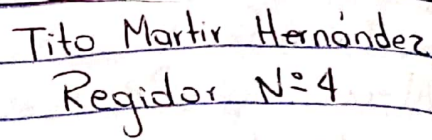 Tito Martir Hernández
Regidor Nº 4